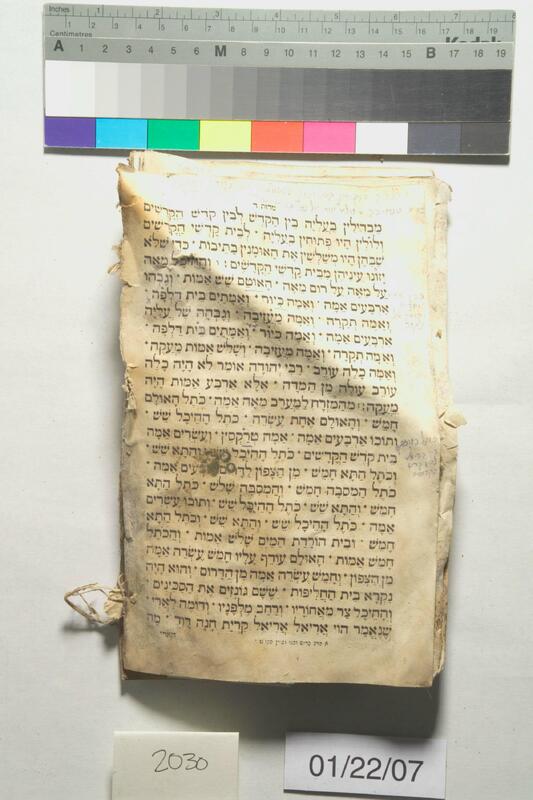 Inches 1 2 3 4 5 6 7 8
Centimetres 1 2 3 4 5 6 7 8 9 10 11 12 13 14 15 16 17 18 19
Kodak
A 1 2 3 4 5 6 M 8 9 10 11 12 13 14 15 B 17 18 19
מדות ד
מבדילין בעליה בין הקדש לבין קדש הקדשים
ולולין היו פתוחין בעליה · לבית קדשי הקדשים
שבהן היו משלשין את האומנין בתיבות · כדי שלא
יזונו עיניהן מבית קדשי הקדשים : ו והחיכל מאה
על מאה על רום מאה · האוטם שש אמות · וגבהו
ארבעים אמה · ואמה כיור · ואמתים בית דלפה ·
ואמה תקרה · ואמה מעזיבה · וגבהה של עליה
ארבעים אמה · ואמה כיור · ואמתים בית דלפה
ואמה תקרה · ואמה מעזיבה · ושלש אמות מעקה ·
ואמה כלה עורב · רבי יהודה אומר לא היה כלה
עורב עולה מן המדה · אלא ארבע אמות היה
מעקה : מהמזרח למערב מאה אמה · כתל האולם
חמש · והאולם אחת עשרה · כתל ההיכל שש ·
ותוכו ארבעים אמה · אמה טרקסין · ועשרים אמה
בית קדש הקדשים · כתל ההיכל שש · והתא שש ·
וכתל התא חמש · מן הצפון לדרום אמה ·
כתל המסבה חמש · והמסבה שלש · כתל התא
חמש · והתא שש · כתל ההיכל שש · ותוכו עשרים
אמה · כתל ההיכל שש · והתא שש · וכתל התא
חמש · ובית הורדת המים שלש אמות · והכתל
חמש אמות · האולם עודף עליו חמש עשרה אמה
מן הצפון · וחמש עשרה אמה מן הדרום · והוא היה
נקרא בית החליפות · ששם גונזים את הסכינים ·
וההיכל צר מאחוריו · ורחב מלפניו · ודומה לארי ·
שנאמר הוי אריאל אריאל קרית חנה דוד · מה
הארי
2030
01/22/07